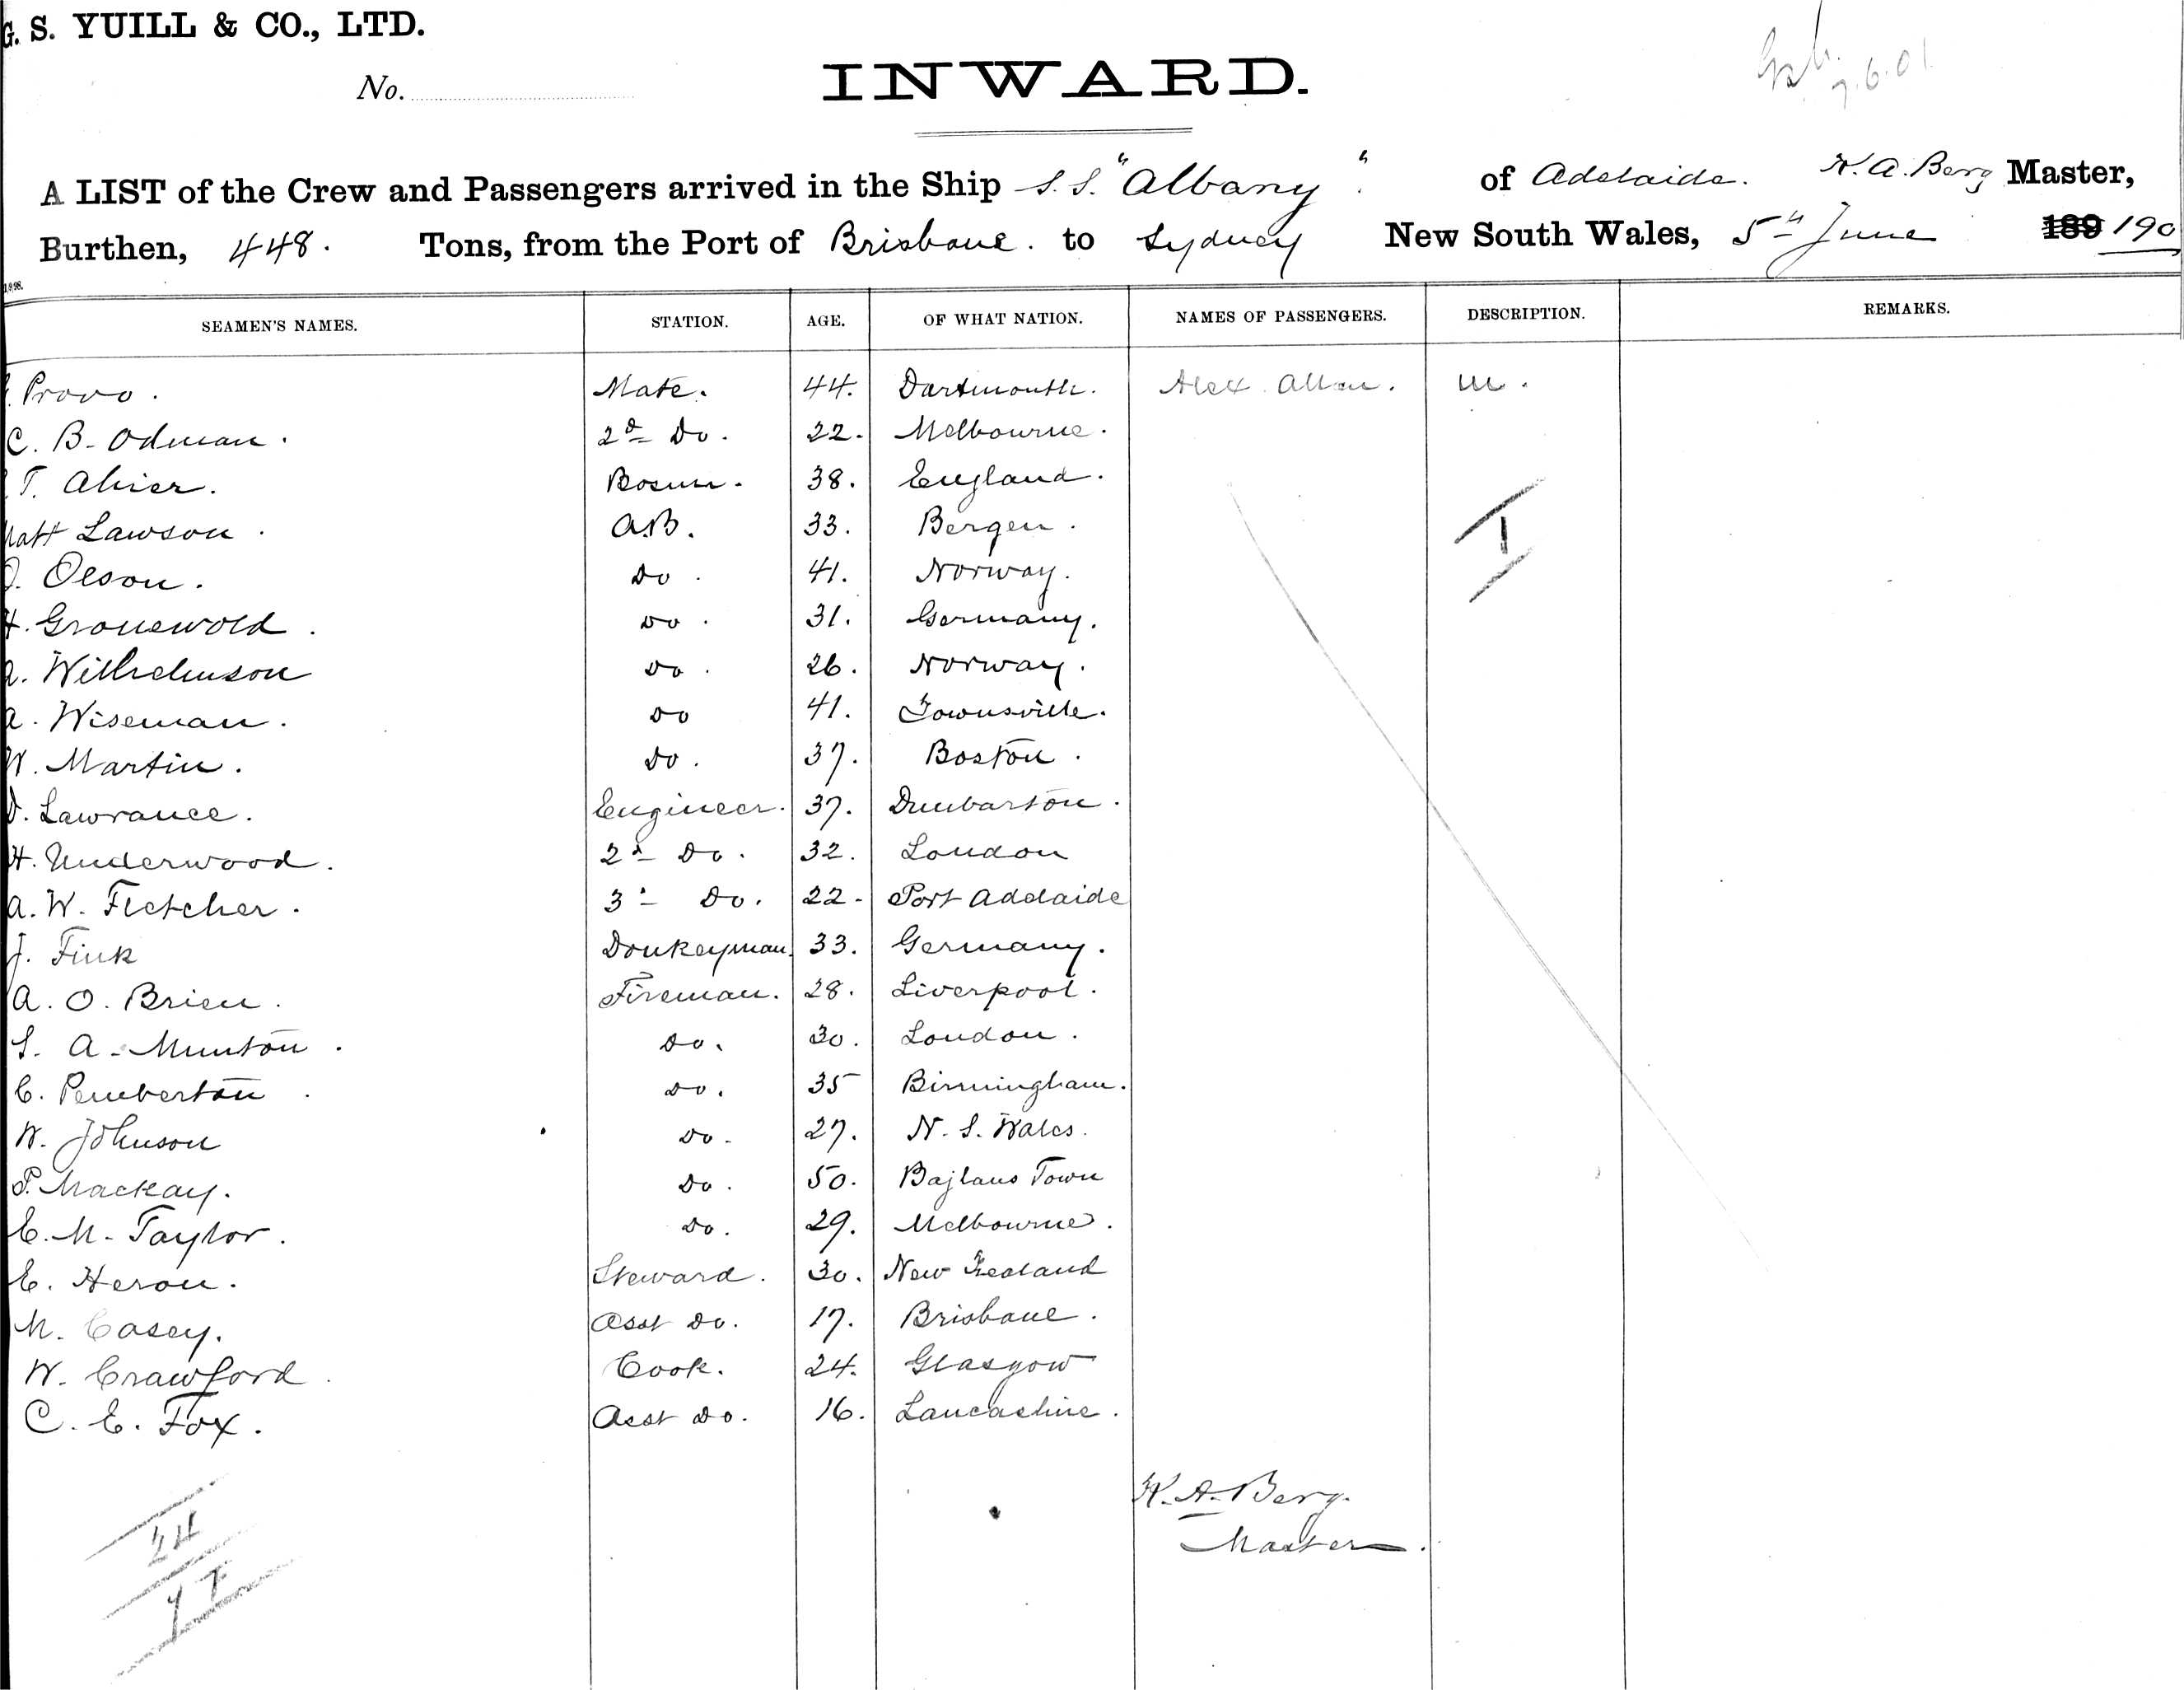 G. S. YUILL & CO., LTD.
7.6.01
No.
INWARD.
A LIST of the Crew and Passengers arrived in the Ship S.S. "Albany" of Adelaide. K. A. Berg Master,
Burthen, 448. Tons, from the Port of Brisbane. to Sydney New South Wales, 5th June 189 190
SEAMEN'S NAMES. STATION. AGE. OF WHAT NATION. NAMES OF PASSENGERS. DESCRIPTION. REMARKS.
Provo. Mate. 44. Dartmouth. Alex Allan. M.
C. B. Odman. 2d Do. 22. Melbourne.
T. Ahier. Bosun. 38. England.
Matt Lawson. A.B. 33. Bergen.
O. Olson. Do. 41. Norway. I
H. Gronewold. Do. 31. Germany.
A. Wilhelmson Do. 26. Norway.
A. Wiseman. Do 41. Townsville.
W. Martin. Do. 37. Boston.
D. Lawrance. Engineer. 37. Dunbarton.
H. Underwood. 2d Do. 32. London
A. W. Fletcher. 3d Do. 22. Port Adelaide
J. Fink Donkeyman. 33. Germany.
A. O. Brien. Fireman. 28. Liverpool.
S. A. Munton. Do. 30. London.
C. Pemberton. Do. 35 Birmingham.
W. Johnson Do. 27. N. S. Wales.
P. Mackay. Do. 50. Bajlans Town
E. M. Taylor. Do. 29. Melbourne.
E. Heron. Steward. 30. New Zealand
M. Casey. Asst Do. 17. Brisbane.
W. Crawford. Cook. 24. Glasgow
C. E. Fox. Asst Do. 16. Lancashire.
K. A. Berg.
Master.
24